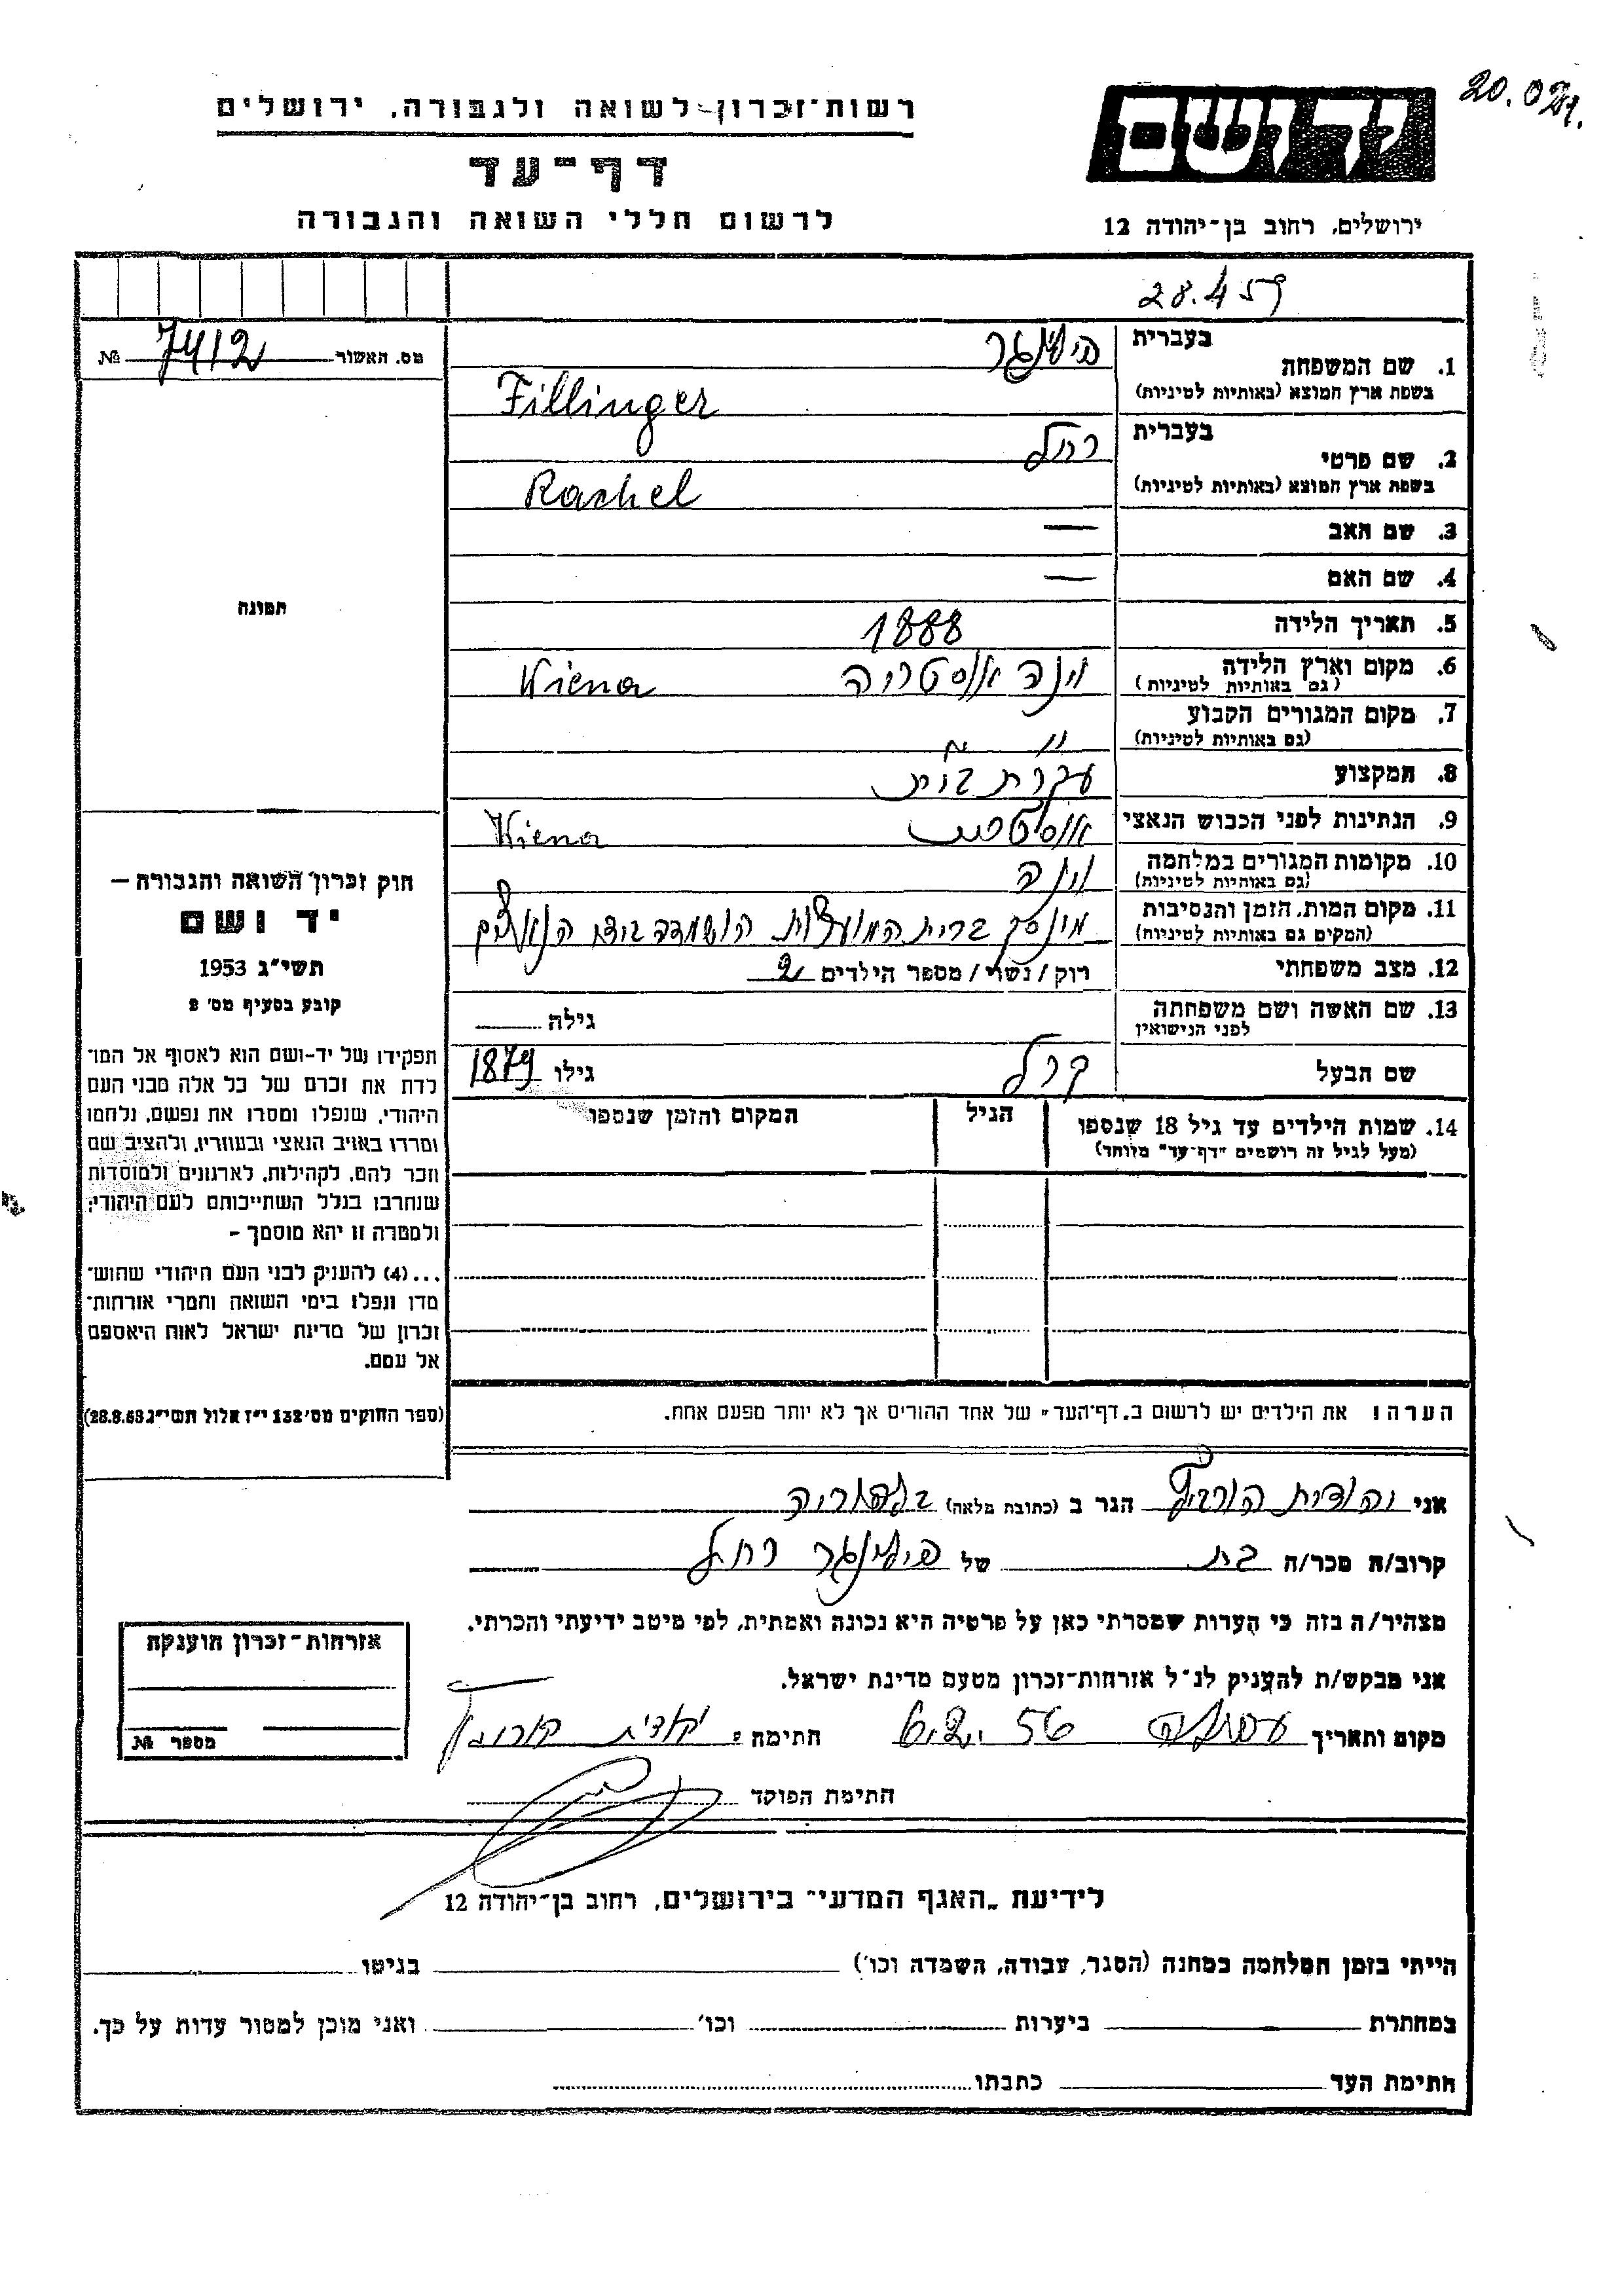 20.021.
רשות־זכרון לשואה ולגבורה, ירושלים
דף־עד
לרשום חללי השואה והגבורה
יד ושם
ירושלים, רחוב בן־יהודה 12
28.4.59
מס. האשור № 7412
1. שם המשפחה בעברית פילינגר
בשפת ארץ המוצא (באותיות לטיניות) Fillinger
2. שם פרטי בעברית רחל
בשפת ארץ המוצא (באותיות לטיניות) Rachel
3. שם האב —
4. שם האם —
5. תאריך הלידה 1888
6. מקום וארץ הלידה (גם באותיות לטיניות) וינה אוסטריה Wiena
7. מקום המגורים הקבוע (גם באותיות לטיניות) " "
8. המקצוע עקרת בית
9. הנתינות לפני הכבוש הנאצי Wiena
10. מקומות המגורים במלחמה (גם באותיות לטיניות) וינה
11. מקום המות, הזמן והנסיבות (המקום גם באותיות לטיניות) מינסק ברית המועצות הושמדה בידי הנאצים
12. מצב משפחתי רוק / נשוי / מספר הילדים 2
13. שם האשה ושם משפחתה לפני הנישואין גילה
שם הבעל קרל גילו 1879
14. שמות הילדים עד גיל 18 שנספו (מעל לגיל זה רושמים "דף־עד" מיוחד) הגיל המקום והזמן שנספו
תמונה
חוק זכרון השואה והגבורה —
יד ושם
תשי״ג 1953
קובע בסעיף מס׳ 2
תפקידו של יד-ושם הוא לאסוף אל המו־
לדת את זכרם של כל אלה מבני העם
היהודי, שנפלו ומסרו את נפשם, נלחמו
ומרדו באויב הנאצי ובעוזריו, ולהציב שם
וזכר להם, לקהילות, לארגונים ולמוסדות
שנחרבו בגלל השתייכותם לעם היהודי;
ולמטרה זו יהא מוסמך –
...(4) להעניק לבני העם היהודי שהוש־
מדו ונפלו בימי השואה והמרי אזרחות־
זכרון של מדינת ישראל לאות היאספם
אל עמם.
(ספר החוקים מס׳ 132 י״ז אלול תשי״ג 28.8.53)
הערה: את הילדים יש לרשום ב„דף־העד" של אחד ההורים אך לא יותר מפעם אחת.
אני יהודית הורביץ הגר ב (כתובת מלאה)
קרוב/ה מכר/ה בת של פילינגר רחל
מצהיר/ה בזה כי העדות שמסרתי כאן על פרטיה היא נכונה ואמתית, לפי מיטב ידיעתי והכרתי.
אני מבקש/ת להעניק לנ״ל אזרחות־זכרון מטעם מדינת ישראל.
מקום ותאריך עפולה חתימה: יהודית הורביץ
חתימת הפוקד
אזרחות־זכרון הוענקה
מספר №
לידיעת „האגף המדעי" בירושלים, רחוב בן־יהודה 12
הייתי בזמן המלחמה במחנה (הסגר, עבודה, השמדה וכו׳) בגיטו
במחתרת ביערות וכו׳ ואני מוכן למסור עדות על כך.
חתימת העד כתבתו